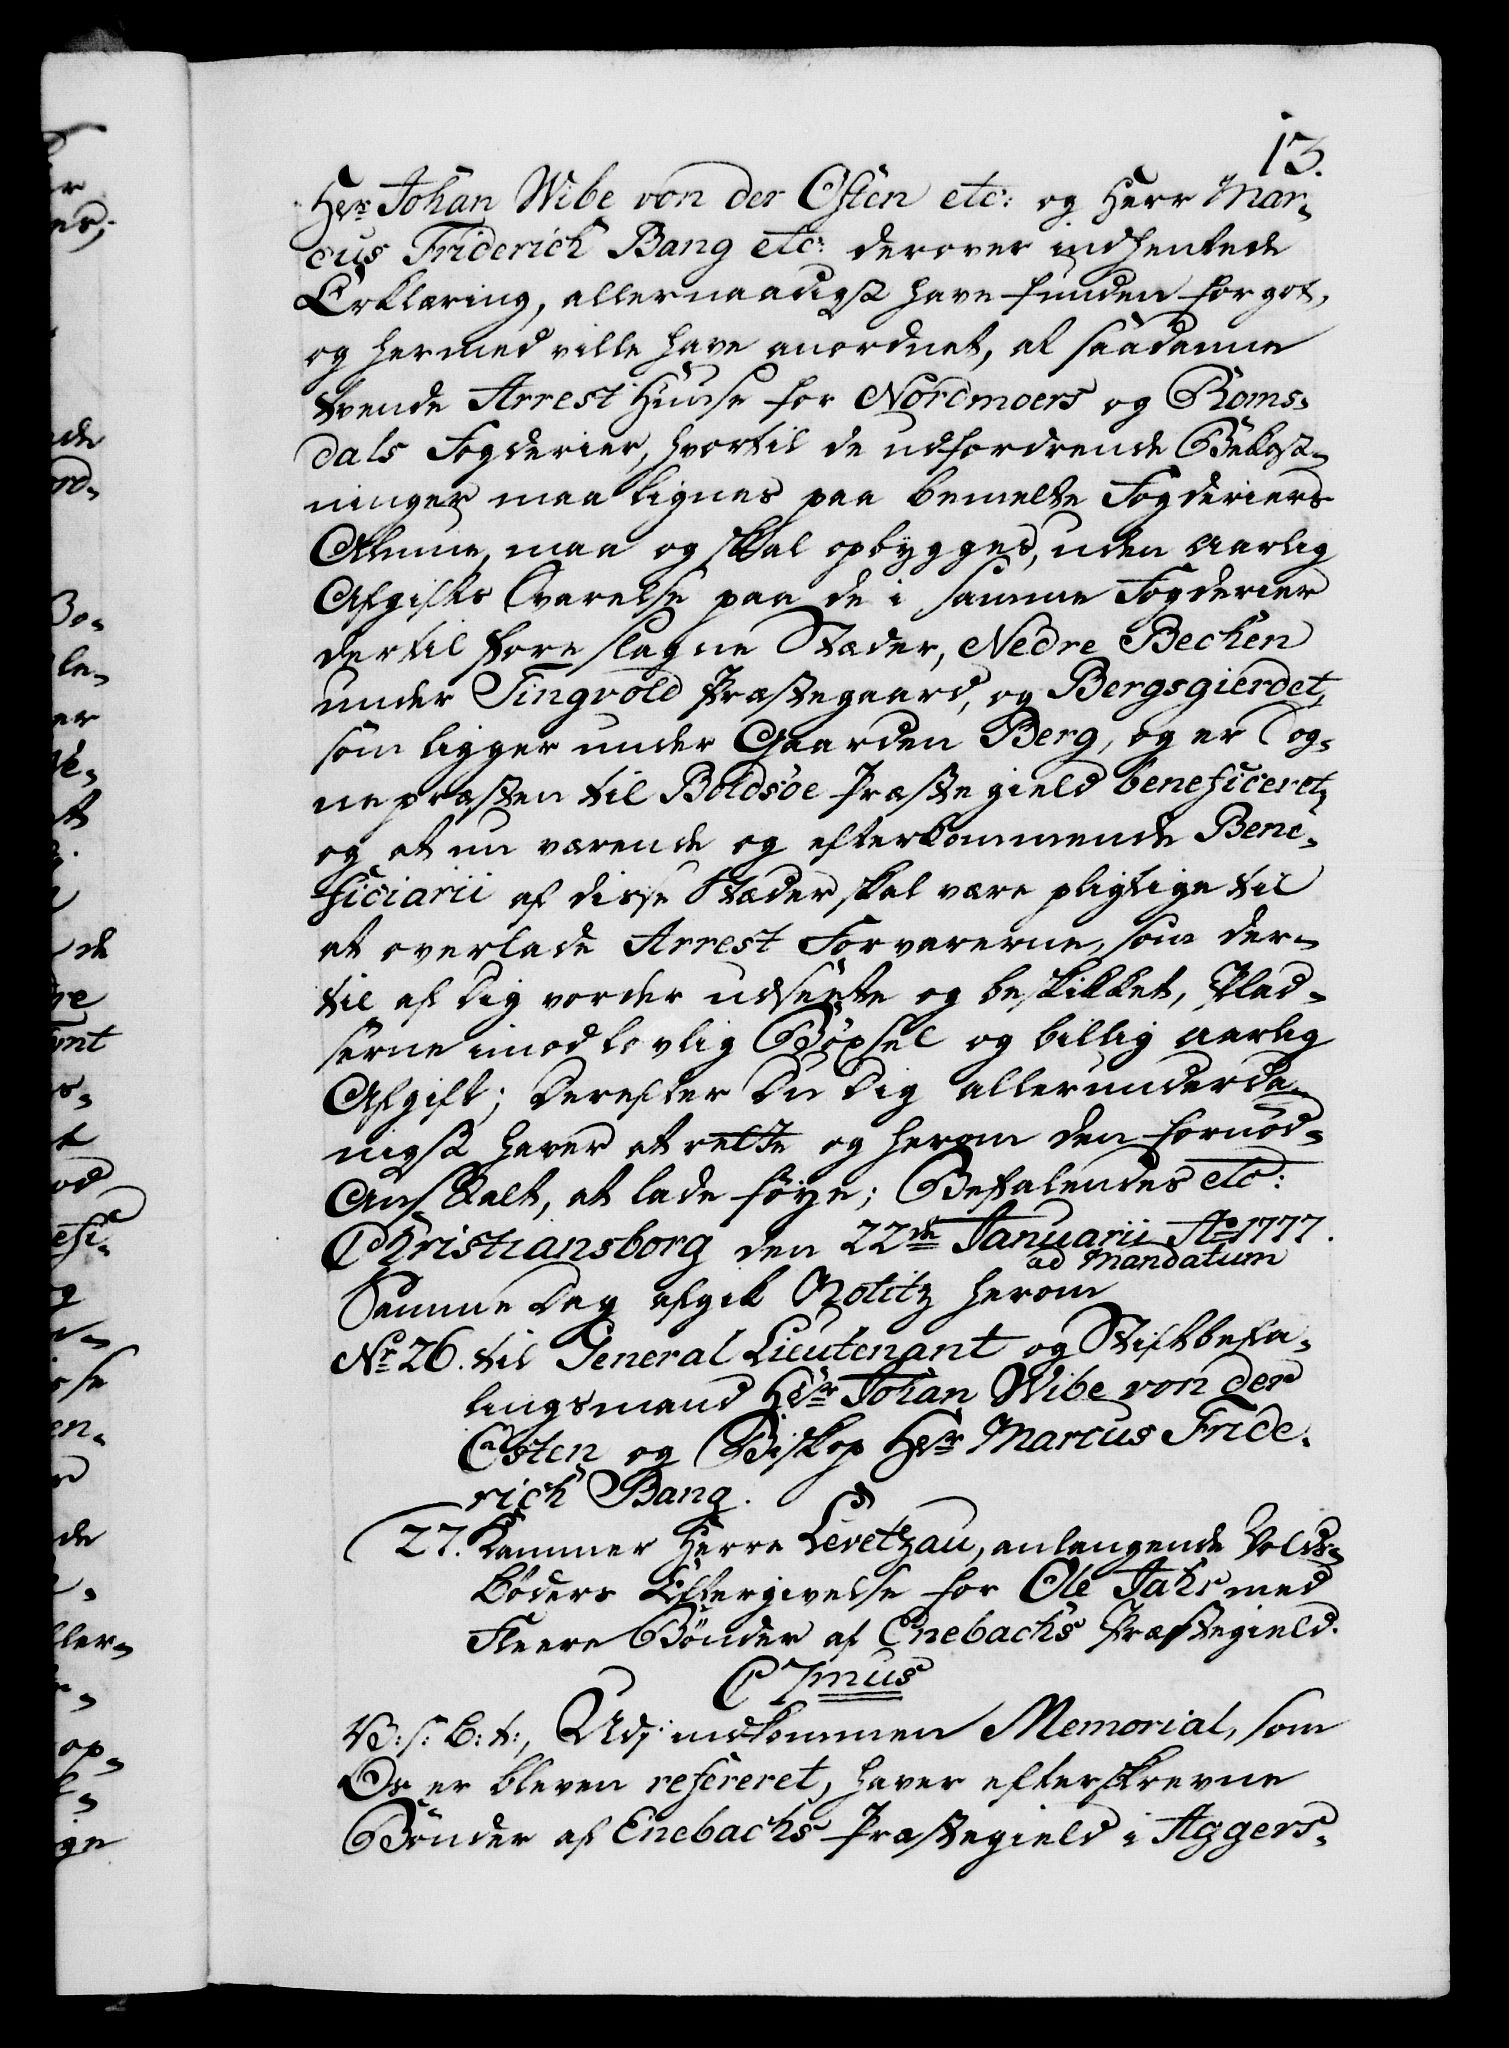 13.
Hr Johan Wibe von der Osten etc: og Herr Mar-
cus Friderich Bang etc: derover indhentede
Erklæring, allernaadigst have funden for got,
og hermed ville have anordnet, at saadanne
tvende Arrest Huuse for Nordmoers og Roms-
dals Fogderier, hvortil de udfordrende Bekost-
ninger maa lignes paa bemelte Fogderiers
Almue, maa og skal opbygges, uden aarlig
Afgifts Svarelse paa de i samme Fogderier
dertil foreslagne Stæder, Nedre Becken
under Tingvold Præstegaard, og Bergsgierdet,
som ligger under Gaarden Berg, og er Sog-
nepræsten til Boldsöe Præstegield beneficeret,
og at nu værende og efterkommende Bene-
ficiarii af disse Stæder skal være pligtige til
at overlade Arrest Forvarerne, som der-
til af Dig vorder udseete og beskikket, Plad-
serne imod lovlig Böxsel og billig aarlig
Afgift; Derefter Du Dig allerunderda-
nigst haver at rette og herom den fornöd-
Anstalt, at lade föye; Befalendes etc:
Christiansborg den 22de Januarii Ao 1777.
ad Mandatum
Samme Dag afgik Notitz herom
No 26. til General Lieutenant og Stiftbefa-
lingsmand Hr Johan Wibe von der
Osten og Biskop Hr Marcus Fride-
rich Bang.
27. Kammer Herre Levetzau, anlangende Volds-
Böders Eftergivelse for Ole Jahr med
Fleere Bönder af Enebachs Præstegield.
C 7mus
V: s: B: t:, Udi indkommen Memorial, som
Os er bleven refereret, haver efterskrevne
Bönder af Enebachs Præstegield i Aggers-